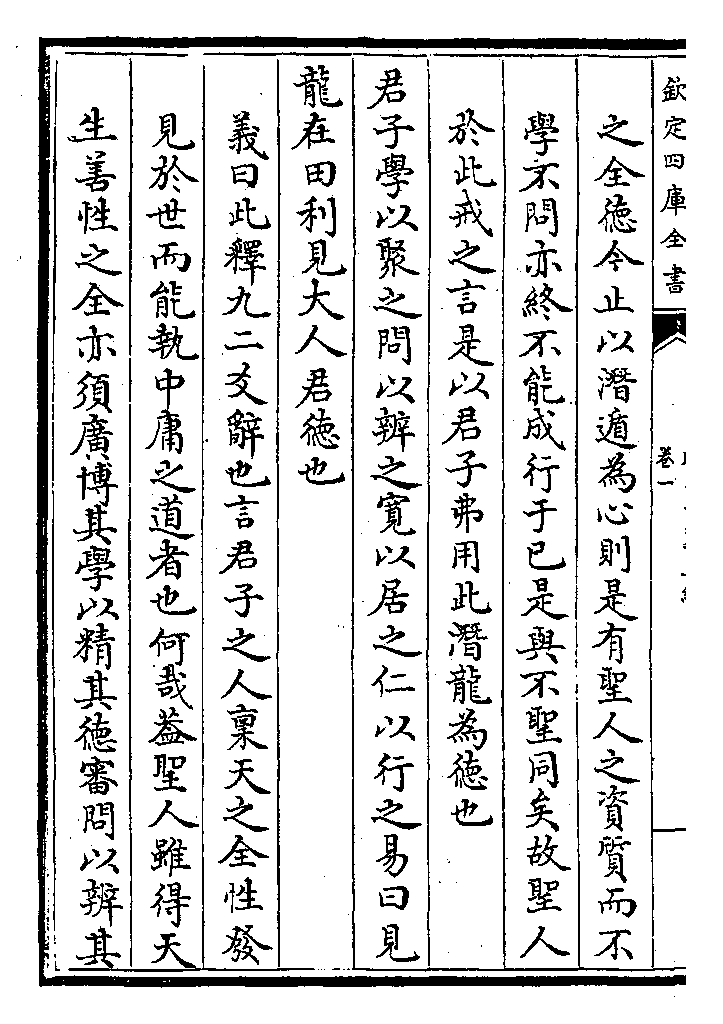 欽定四庫全書
卷一
之全徳今止以潛遁為心則是有聖人之資質而不
學不問亦終不能成行于已是與不聖同矣故聖人
於此戒之言是以君子弗用此潛龍為徳也
君子學以聚之問以辨之寛以居之仁以行之易曰見
龍在田利見大人君徳也
義曰此釋九二爻辭也言君子之人稟天之全性發
見於世而能執中庸之道者也何哉葢聖人雖得天
生善性之全亦須廣博其學以精其徳審問以辨其